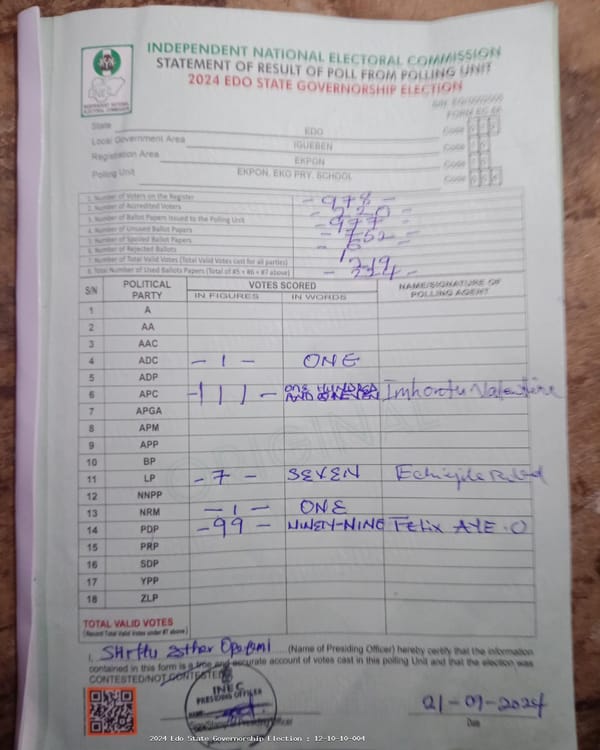 INDEPENDENT NATIONAL ELECTORAL COMMISSION
STATEMENT OF RESULT OF POLL FROM POLLING UNIT
2024 EDO STATE GOVERNORSHIP ELECTION
FORM EC 8A
State EDO Code
Local Government Area IGUEBEN Code
Registration Area EKPON Code
Polling Unit EKPON, EKO PRY. SCHOOL Code
1. Number of Voters on the Register - 978 -
2. Number of Accredited Voters - 220 =
3. Number of Ballot Papers Issued to the Polling Unit - 977 =
4. Number of Unused Ballot Papers - 752 =
5. Number of Spoiled Ballot Papers
6. Number of Rejected Ballots
7. Number of Total Valid Votes (Total Valid Votes cast for all parties) 219
8. Total Number of Used Ballots Papers (Total of #5 + #6 + #7 above)
S/N POLITICAL PARTY VOTES SCORED NAME/SIGNATURE OF POLLING AGENT
IN FIGURES IN WORDS
1 A
2 AA
3 AAC
4 ADC - 1 - ONE
5 ADP
6 APC - 111 - ONE HUNDRED AND ELEVEN
7 APGA
8 APM
9 APP
10 BP
11 LP - 7 - SEVEN
12 NNPP
13 NRM - 1 - ONE
14 PDP - 99 - NINETY-NINE Felix AYE.O
15 PRP
16 SDP
17 YPP
18 ZLP
ORIGINAL
TOTAL VALID VOTES
(Record Total Valid Votes under #7 above)
I, Esther (Name of Presiding Officer) hereby certify that the information
contained in this form is a true and accurate account of votes cast in this polling Unit and that the election was
CONTESTED/NOT CONTESTED
INEC
PRESIDING OFFICER
21-09-2024
Date
2024 Edo State Governorship Election : 12-10-10-004